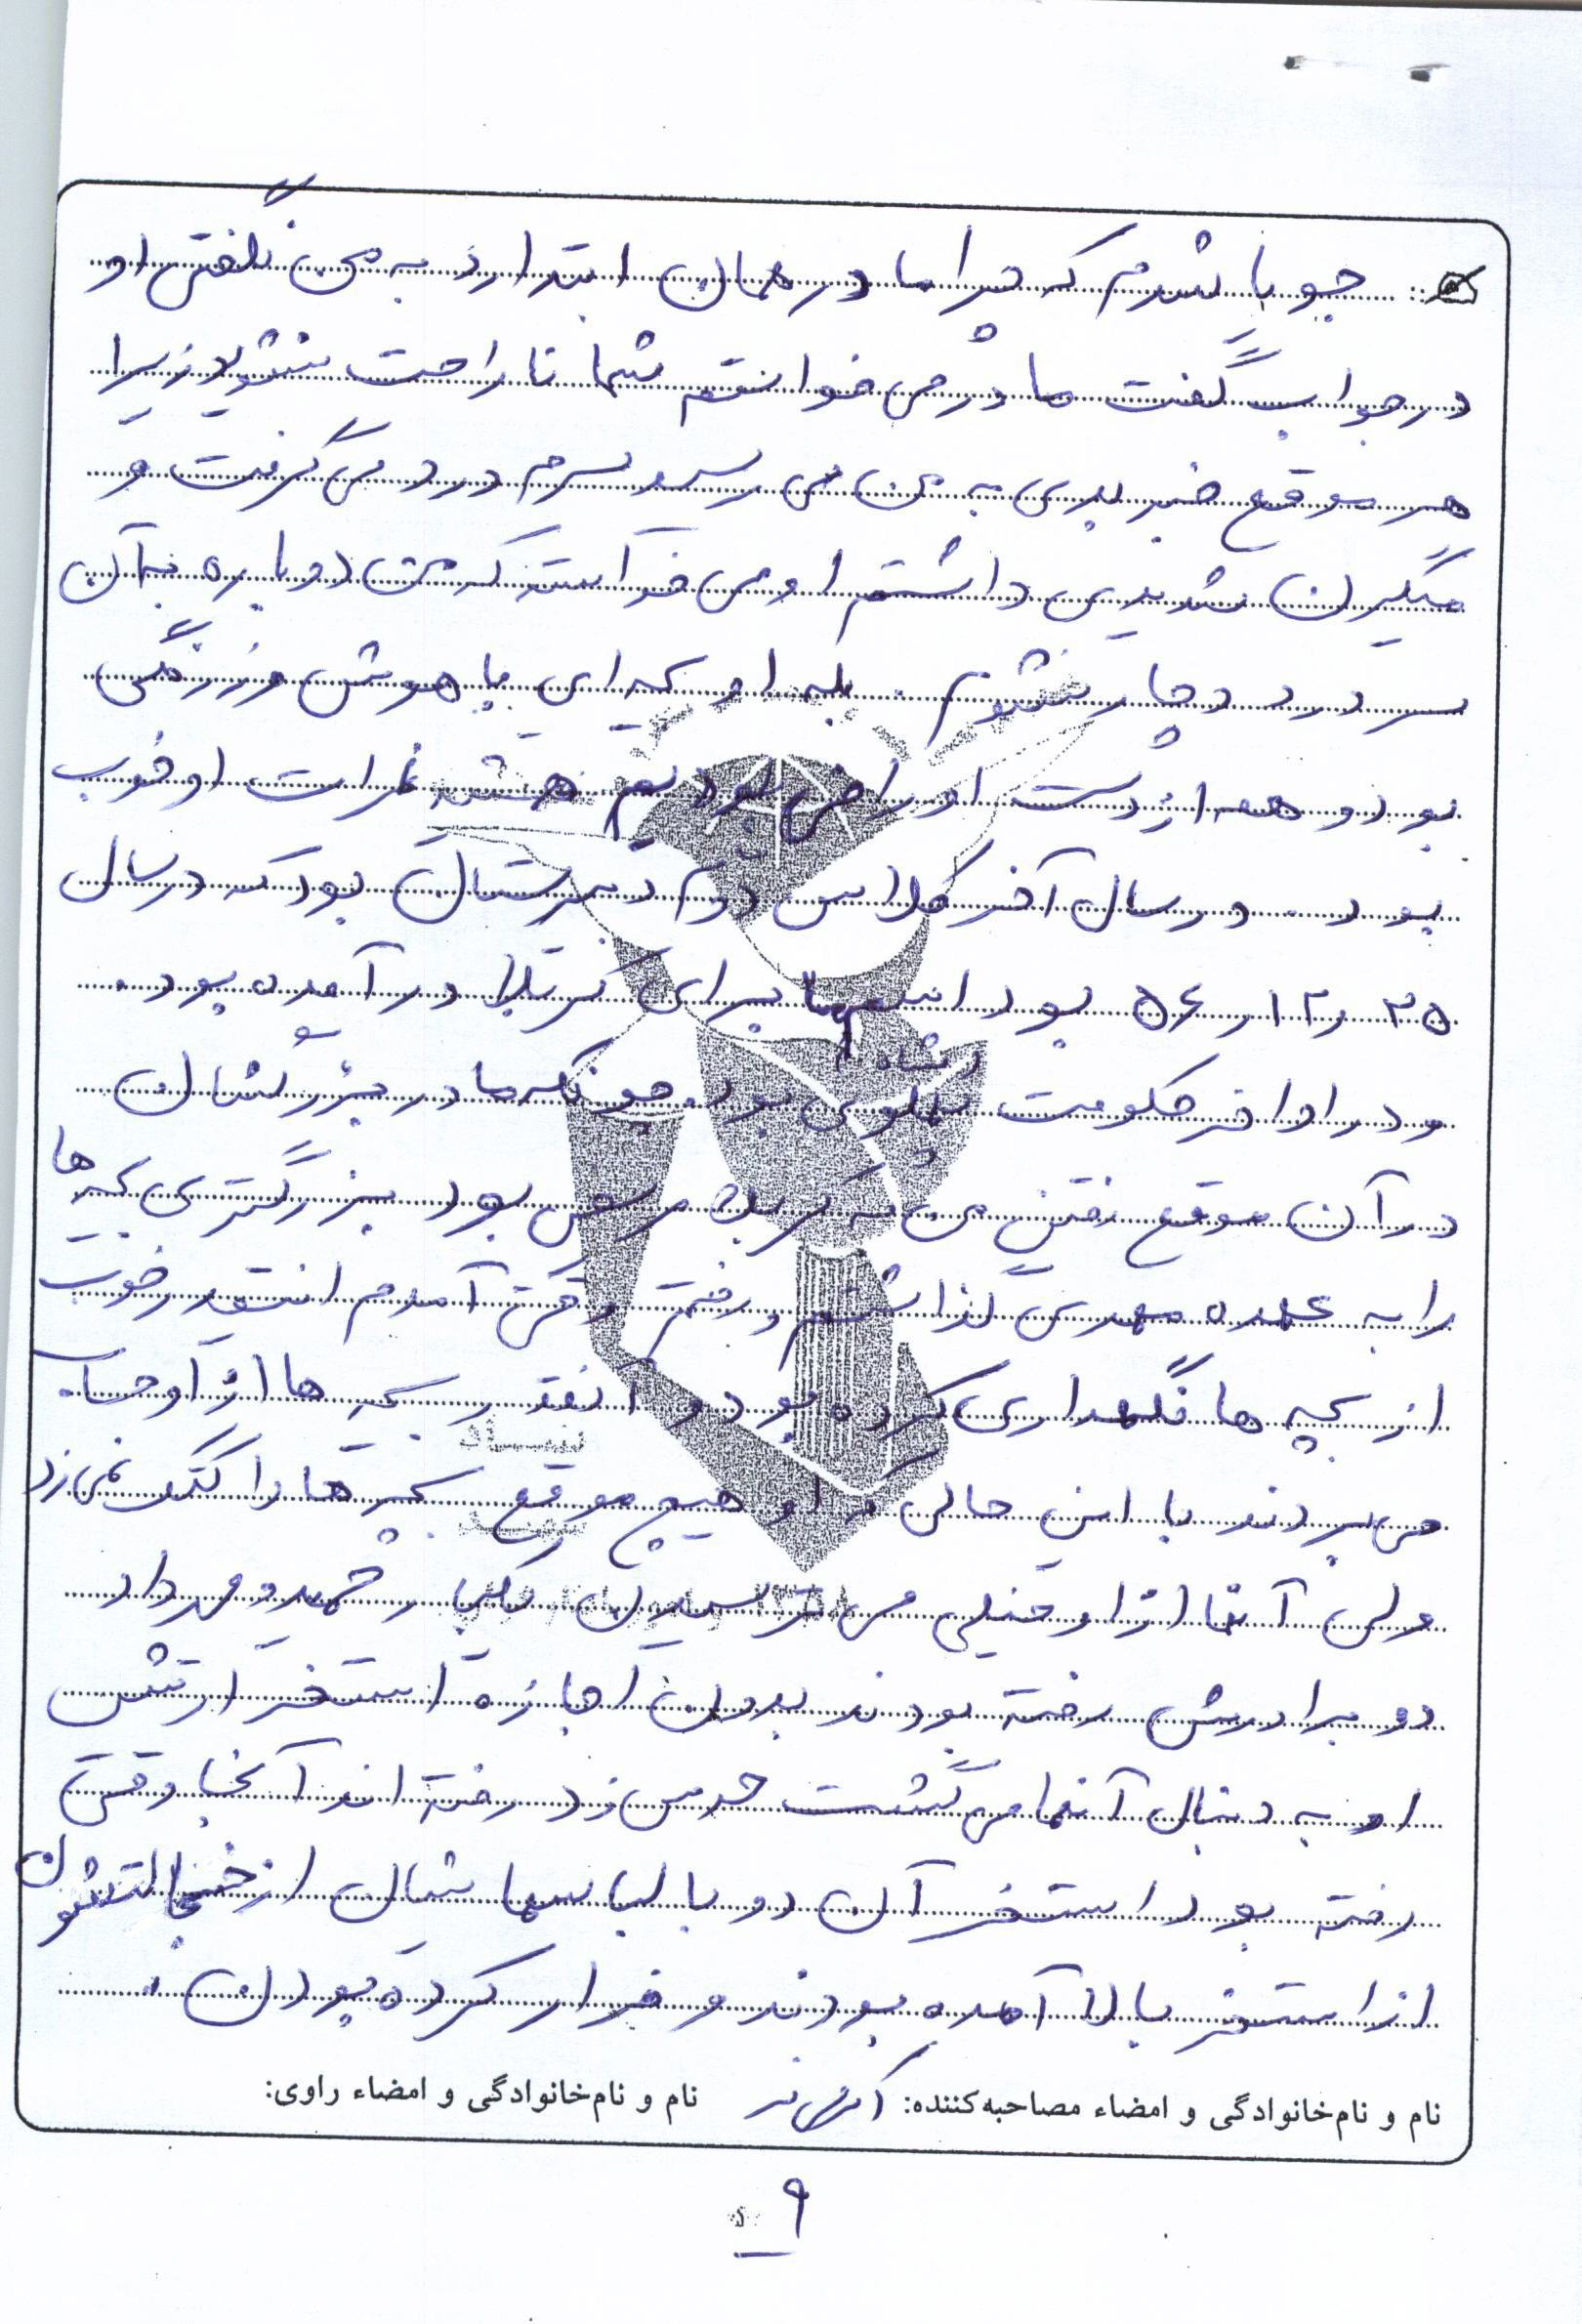 جویا شدم که چرا مادر همان ابتدا رد به من نگفتی او
در جواب گفت مادر می خواستم شما ناراحت نشوید زیرا
هر موقع خبر بدی به من می رسید سرم درد می گرفت و
میگرن شدیدی داشتم او می خواست که من دوباره به آن
سردرد دچار نشوم . بله او بچه ای با هوش و زرنگی
بود و همه از دست او راضی بودیم همیشه نمرات او خوب
بود . در سال آخر کلاس دوم دبیرستان بود که در سال
۲۵ ر ۱۲ ر ۵۶ بود اسم ما برای کربلا در آمده بود .
و در اواخر حکومت پهلوی (شاه) بود چونکه مادر بزرگشان
در آن موقع رفتن من به کربلا مریض بود بزرگتری بچه ها
را به عهده مهدی گذاشتم و رفتم وقتی آمدم انقدر خوب
از بچه ها نگهداری کرده بود و آنقدر بچه ها از او حساب
می بردند با این حالی که او هیچ موقع بچه ها را کتک نمی زد
ولی آنها از او خیلی می ترسیدن یکبار حمید و مهرداد
دو برادرش رفته بودند بدون اجازه استخر ارتش
او به دنبال آنها می گشت حدس زد رفته اند آنجا وقتی
رفته بود استخر آن دو با لباسهاشان از خجالتشون
از استخر بالا آمده بودند و فرار کرده بودن .
نام و نام‌خانوادگی و امضاء مصاحبه‌کننده: نام و نام‌خانوادگی و امضاء راوی:
۹